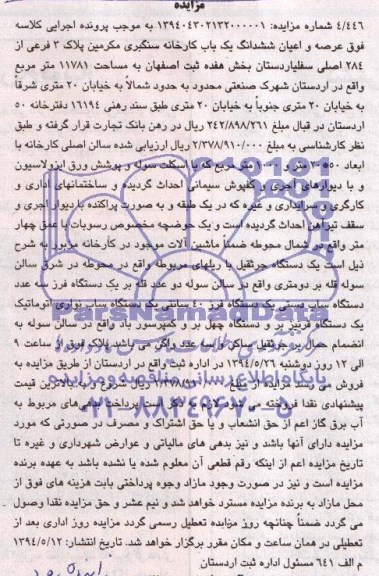 مزایده
۴/۴۴۶ شماره مزایده: ۱۳۹۴۰۴۳۰۲۱۳۲۰۰۰۰۰۱ به موجب پرونده اجرایی کلاسه
فوق عرصه و اعیان ششدانگ یک باب کارخانه سنگبری مکرمین پلاک ۲ فرعی از
۲۸۴ اصلی سفلیاردستان بخش هفده ثبت اصفهان به مساحت ۱۱۷۸۱ متر مربع
واقع در اردستان شهرک صنعتی محدود به حدود شمالاً به خیابان ۲۰ متری شرقاً
به خیابان ۲۰ متری جنوباً به خیابان ۲۰ متری طبق سند رهنی ۱۶۱۹۴ دفترخانه ۵۰
اردستان در قبال مبلغ ۲۴۲/۸۹۸/۲۶۱ ریال در رهن بانک تجارت قرار گرفته و طبق
نظر کارشناسی به مبلغ ۲/۳۷۸/۹۱۰/۰۰۰ ریال ارزیابی شده سالن اصلی کارخانه با
ابعاد متر و متر مربع که با اسکلت سوله و پوشش ورق ایزولاسیون
و با دیوارهای آجری و کفپوش سیمانی احداث گردیده و ساختمانهای اداری و
کارگری و سرایداری و غیره که در یک طبقه و به صورت پراکنده با دیوار آجری و
سقف تیرآهن احداث گردیده است و یک حوضچه مخصوص رسوبات با عمق چهار
متر واقع در شمال محوطه ضمناً ماشین آلات موجود در کارخانه مزبور به شرح
ذیل است یک دستگاه جرثقیل با ریلهای مربوطه واقع در محوطه در شرق سالن
سوله قله بر دومتری واقع در سالن سوله دو عدد قله بر یک دستگاه فرز سه عدد
دستگاه ساب دستی یک دستگاه فرز ۴۰ سانتی یک دستگاه ساب نواری اتوماتیک
یک دستگاه قرنیز بر و دستگاه چهل بر و کمپرسور باد واقع در سالن سوله به
انضمام حمال زیر جرثقیل ساکن و سه عدد واگن می باشد پلاک فوق از ساعت ۹
الی ۱۲ روز دوشنبه ۱۳۹۴/۵/۲۶ در اداره ثبت واقع در اردستان از طریق مزایده به
فروش می رسد مزایده از مبلغ شروع و به بالاترین قیمت
پیشنهادی نقدا فروخته می شود لازم به ذکر است پرداخت بدهی های مربوط به
آب برق گاز اعم از حق انشعاب و یا حق اشتراک و مصرف در صورتی که مورد
مزایده دارای آنها باشد و نیز بدهی های مالیاتی و عوارض شهرداری و غیره تا
تاریخ مزایده اعم از اینکه رقم قطعی آن معلوم شده یا نشده باشد به عهده برنده
مزایده است و نیز در صورت وجود مازاد وجوه پرداختی بابت هزینه های فوق از
محل مازاد به برنده مزایده مسترد خواهد شد و نیم عشر و حق مزایده نقدا وصول
می گردد ضمناً چنانچه روز مزایده تعطیل رسمی گردد مزایده روز اداری بعد از
تعطیلی در همان ساعت و مکان مقرر برگزار خواهد شد. تاریخ انتشار: ۱۳۹۴/۵/۱۲
م الف ۶۴۱ مسئول اداره ثبت اردستان
ParsNamadData
پایگاه اطلاع رسانی مناقصه و مزایده
۰۲۱-۸۸۳۴۹۶۷۰-۵